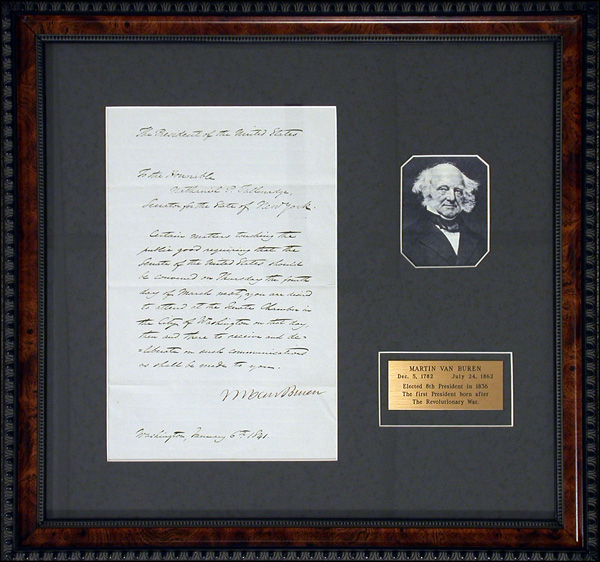 The President of the United States
To the Honorable
Nathaniel P. Tallmadge,
Senator for the State of New York.
Certain matters touching the
public good requiring that the
Senate of the United States should
be convened on Thursday the fourth
day of March next, you are desired
to attend at the Senate Chamber in
the City of Washington on that day,
then and there to receive and de-
=liberate on such communications
as shall be made to you.
M Van Buren
Washington, January 6th 1841.
MARTIN VAN BUREN
Dec. 5, 1782 July 24, 1862
Elected 8th President in 1836
The first President born after
The Revolutionary War.